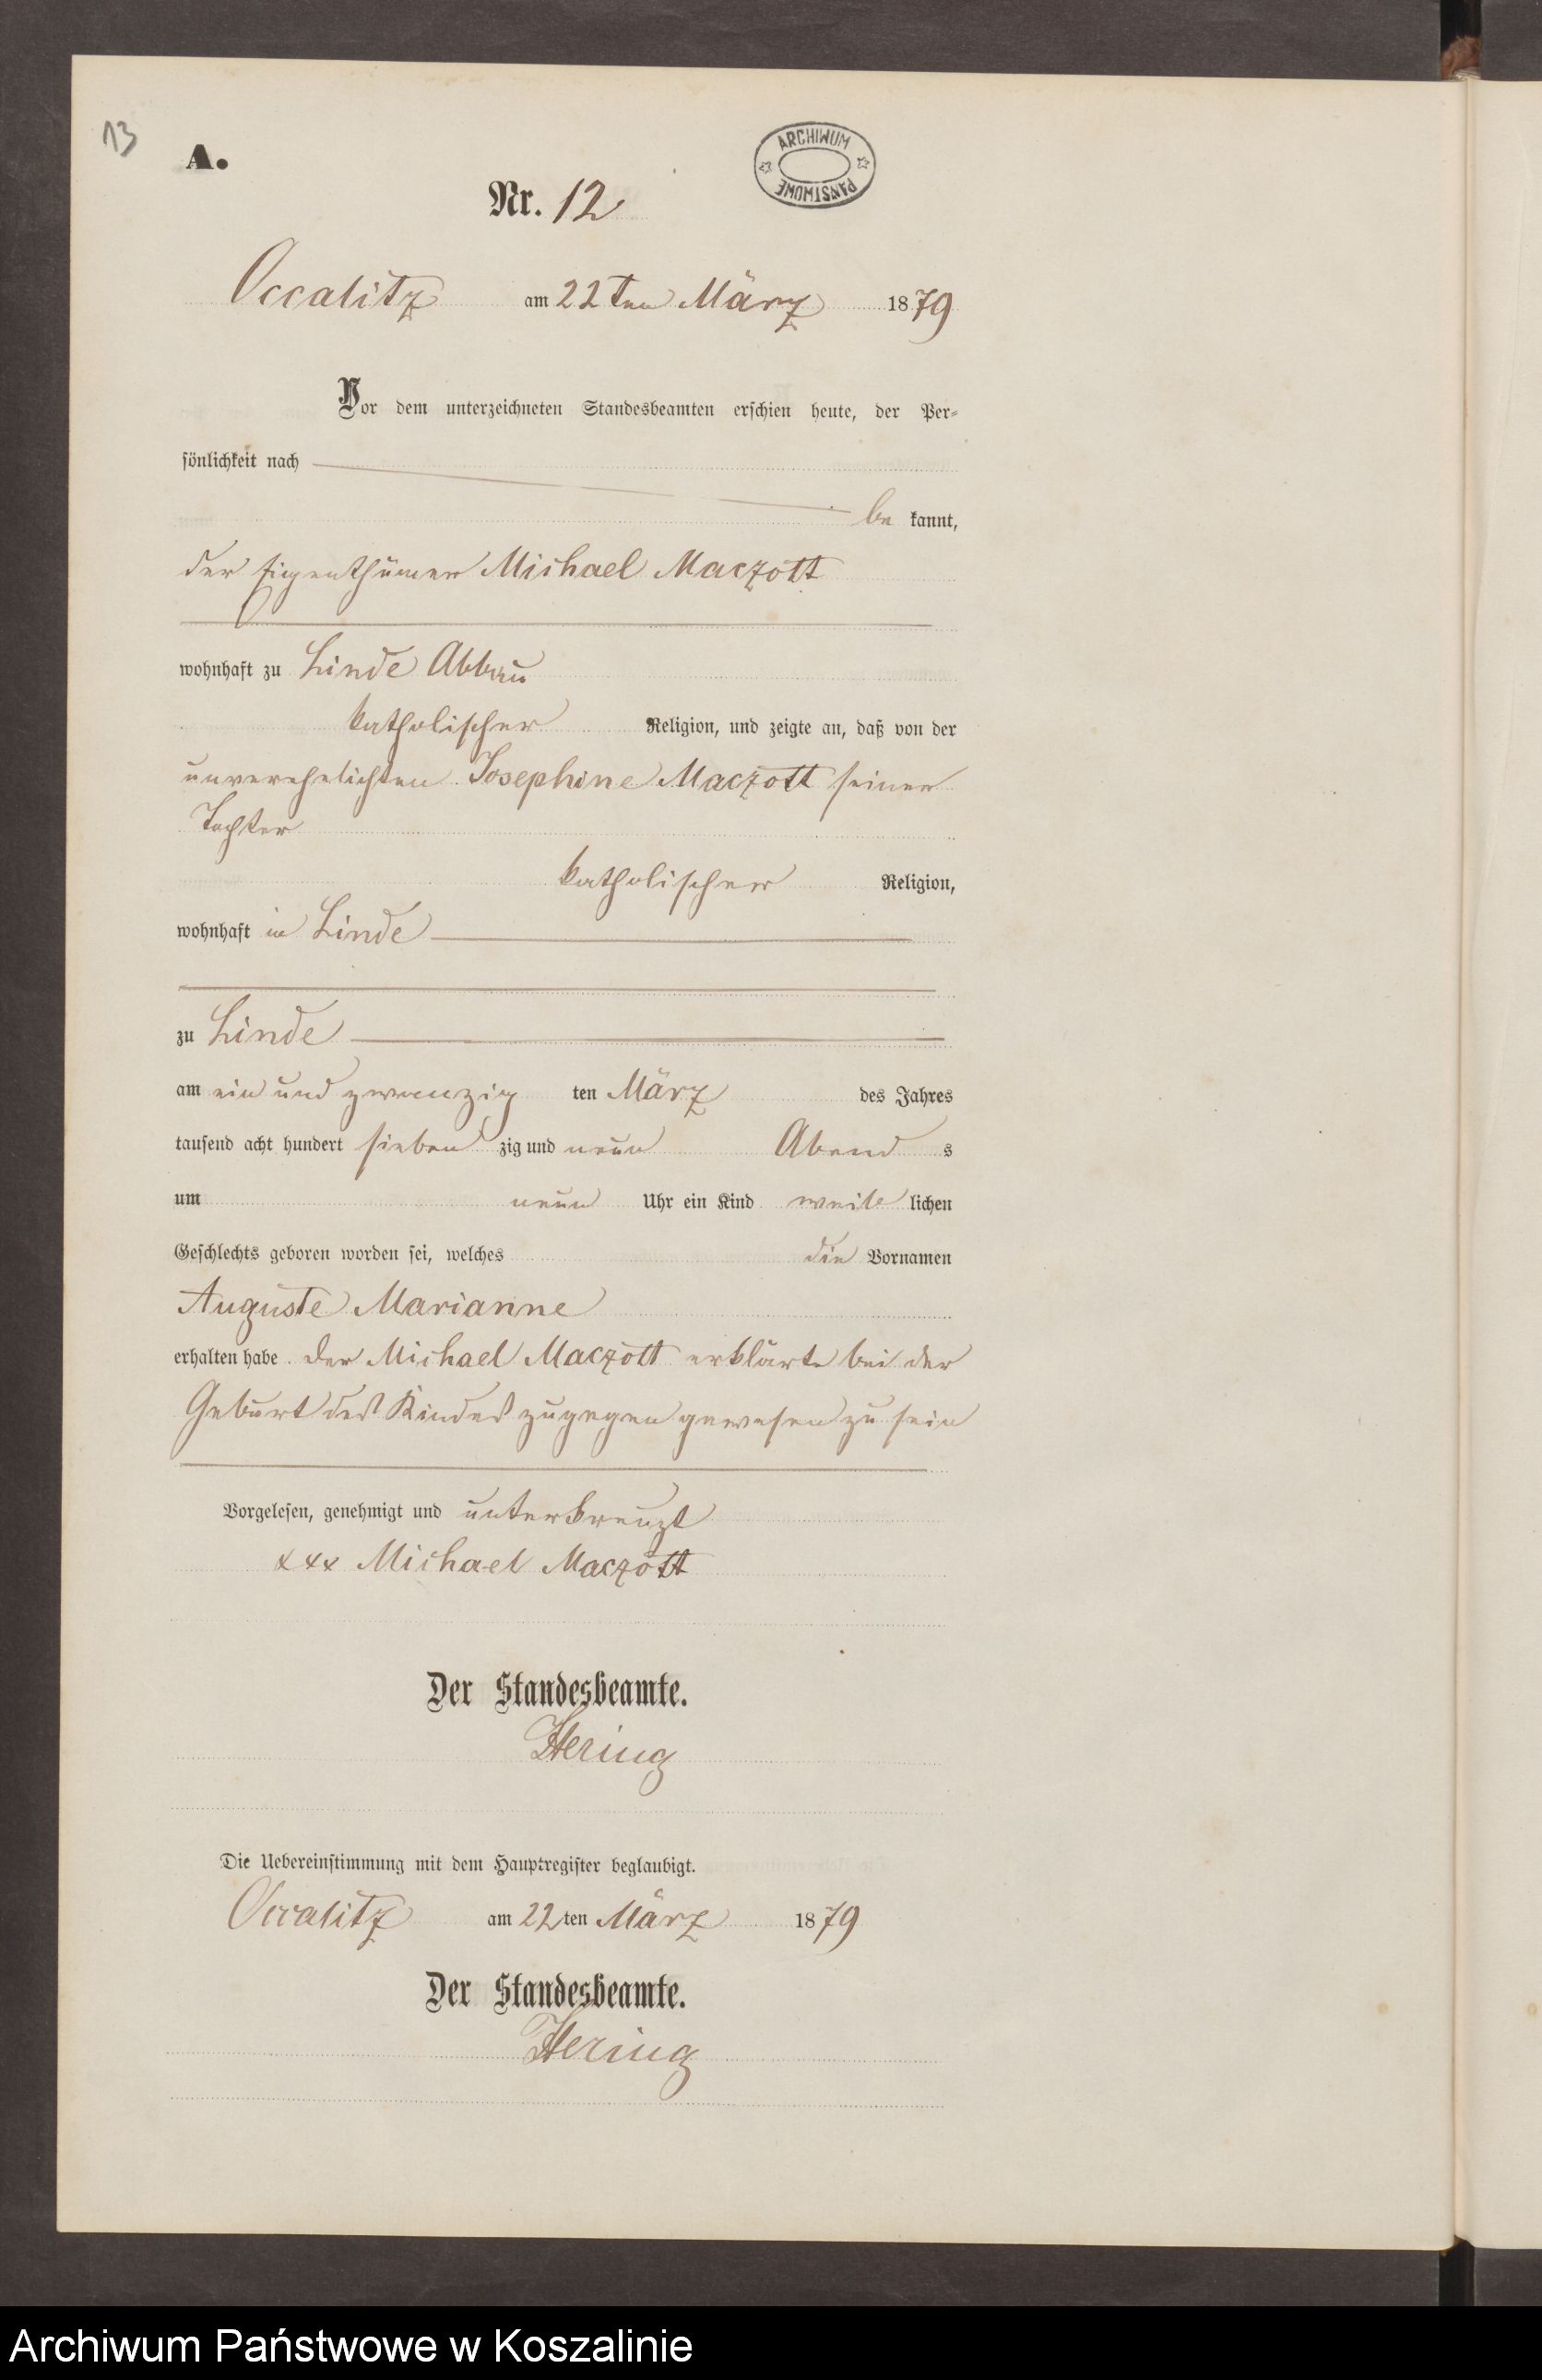 13
A.
ARCHIWUM PAŃSTWOWE
Nr. 12
Occalitz am 22ten März 1879
Vor dem unterzeichneten Standesbeamten erschien heute, der Per-
sönlichkeit nach
be kannt,
der Eigenthümer Michael Maczott
wohnhaft zu Linde Abbau
katholischer Religion, und zeigte an, daß von der
unverehelichten Josephine Maczott seiner
Tochter
katholischer Religion,
wohnhaft in Linde
zu Linde
am ein und zwanzig ten März des Jahres
tausend acht hundert sieben zig und neun Abend s
um neun Uhr ein Kind weib lichen
Geschlechts geboren worden sei, welches die Vornamen
Auguste Marianne
erhalten habe der Michael Maczott erklärte bei der
Geburt des Kindes zugegen gewesen zu sein
Vorgelesen, genehmigt und unterkreuzt
xxx Michael Maczott
Der Standesbeamte.
Hering
Die Uebereinstimmung mit dem Hauptregister beglaubigt.
Occalitz am 22ten März 1879
Der Standesbeamte.
Hering
Archiwum Państwowe w Koszalinie